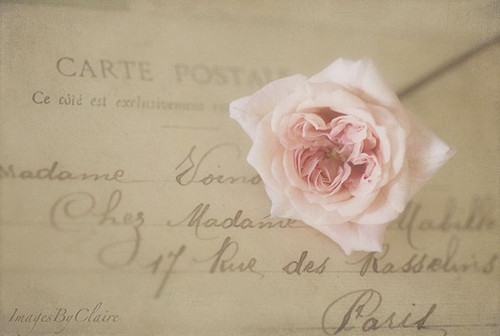 CARTE POSTAL
Ce côté est exclusivement
Madame Voino
Chez Madame Mabille
17 Rue des Rasselins
Paris
ImagesByClaire